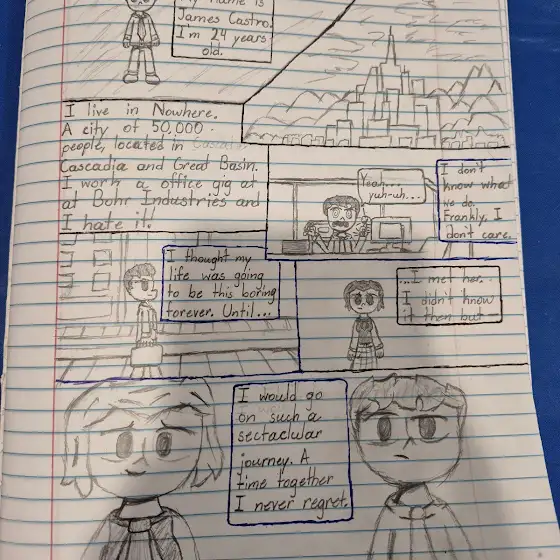 My name is
James Castro.
I'm 24 years
old.
I live in Nowhere.
A city of 50,000
people, located in
Cascadia and Great Basin.
I work a office gig at
at Bohr Industries and
I hate it!
Yeah...
yuh-uh...
I don't
know what
we do.
Frankly, I
don't care.
I thought my
life was going
to be this boring
forever. Until...
...I met her.
I didn't know
it then but
I would go
on such a
sectaclular
journey. A
time together
I never regret.